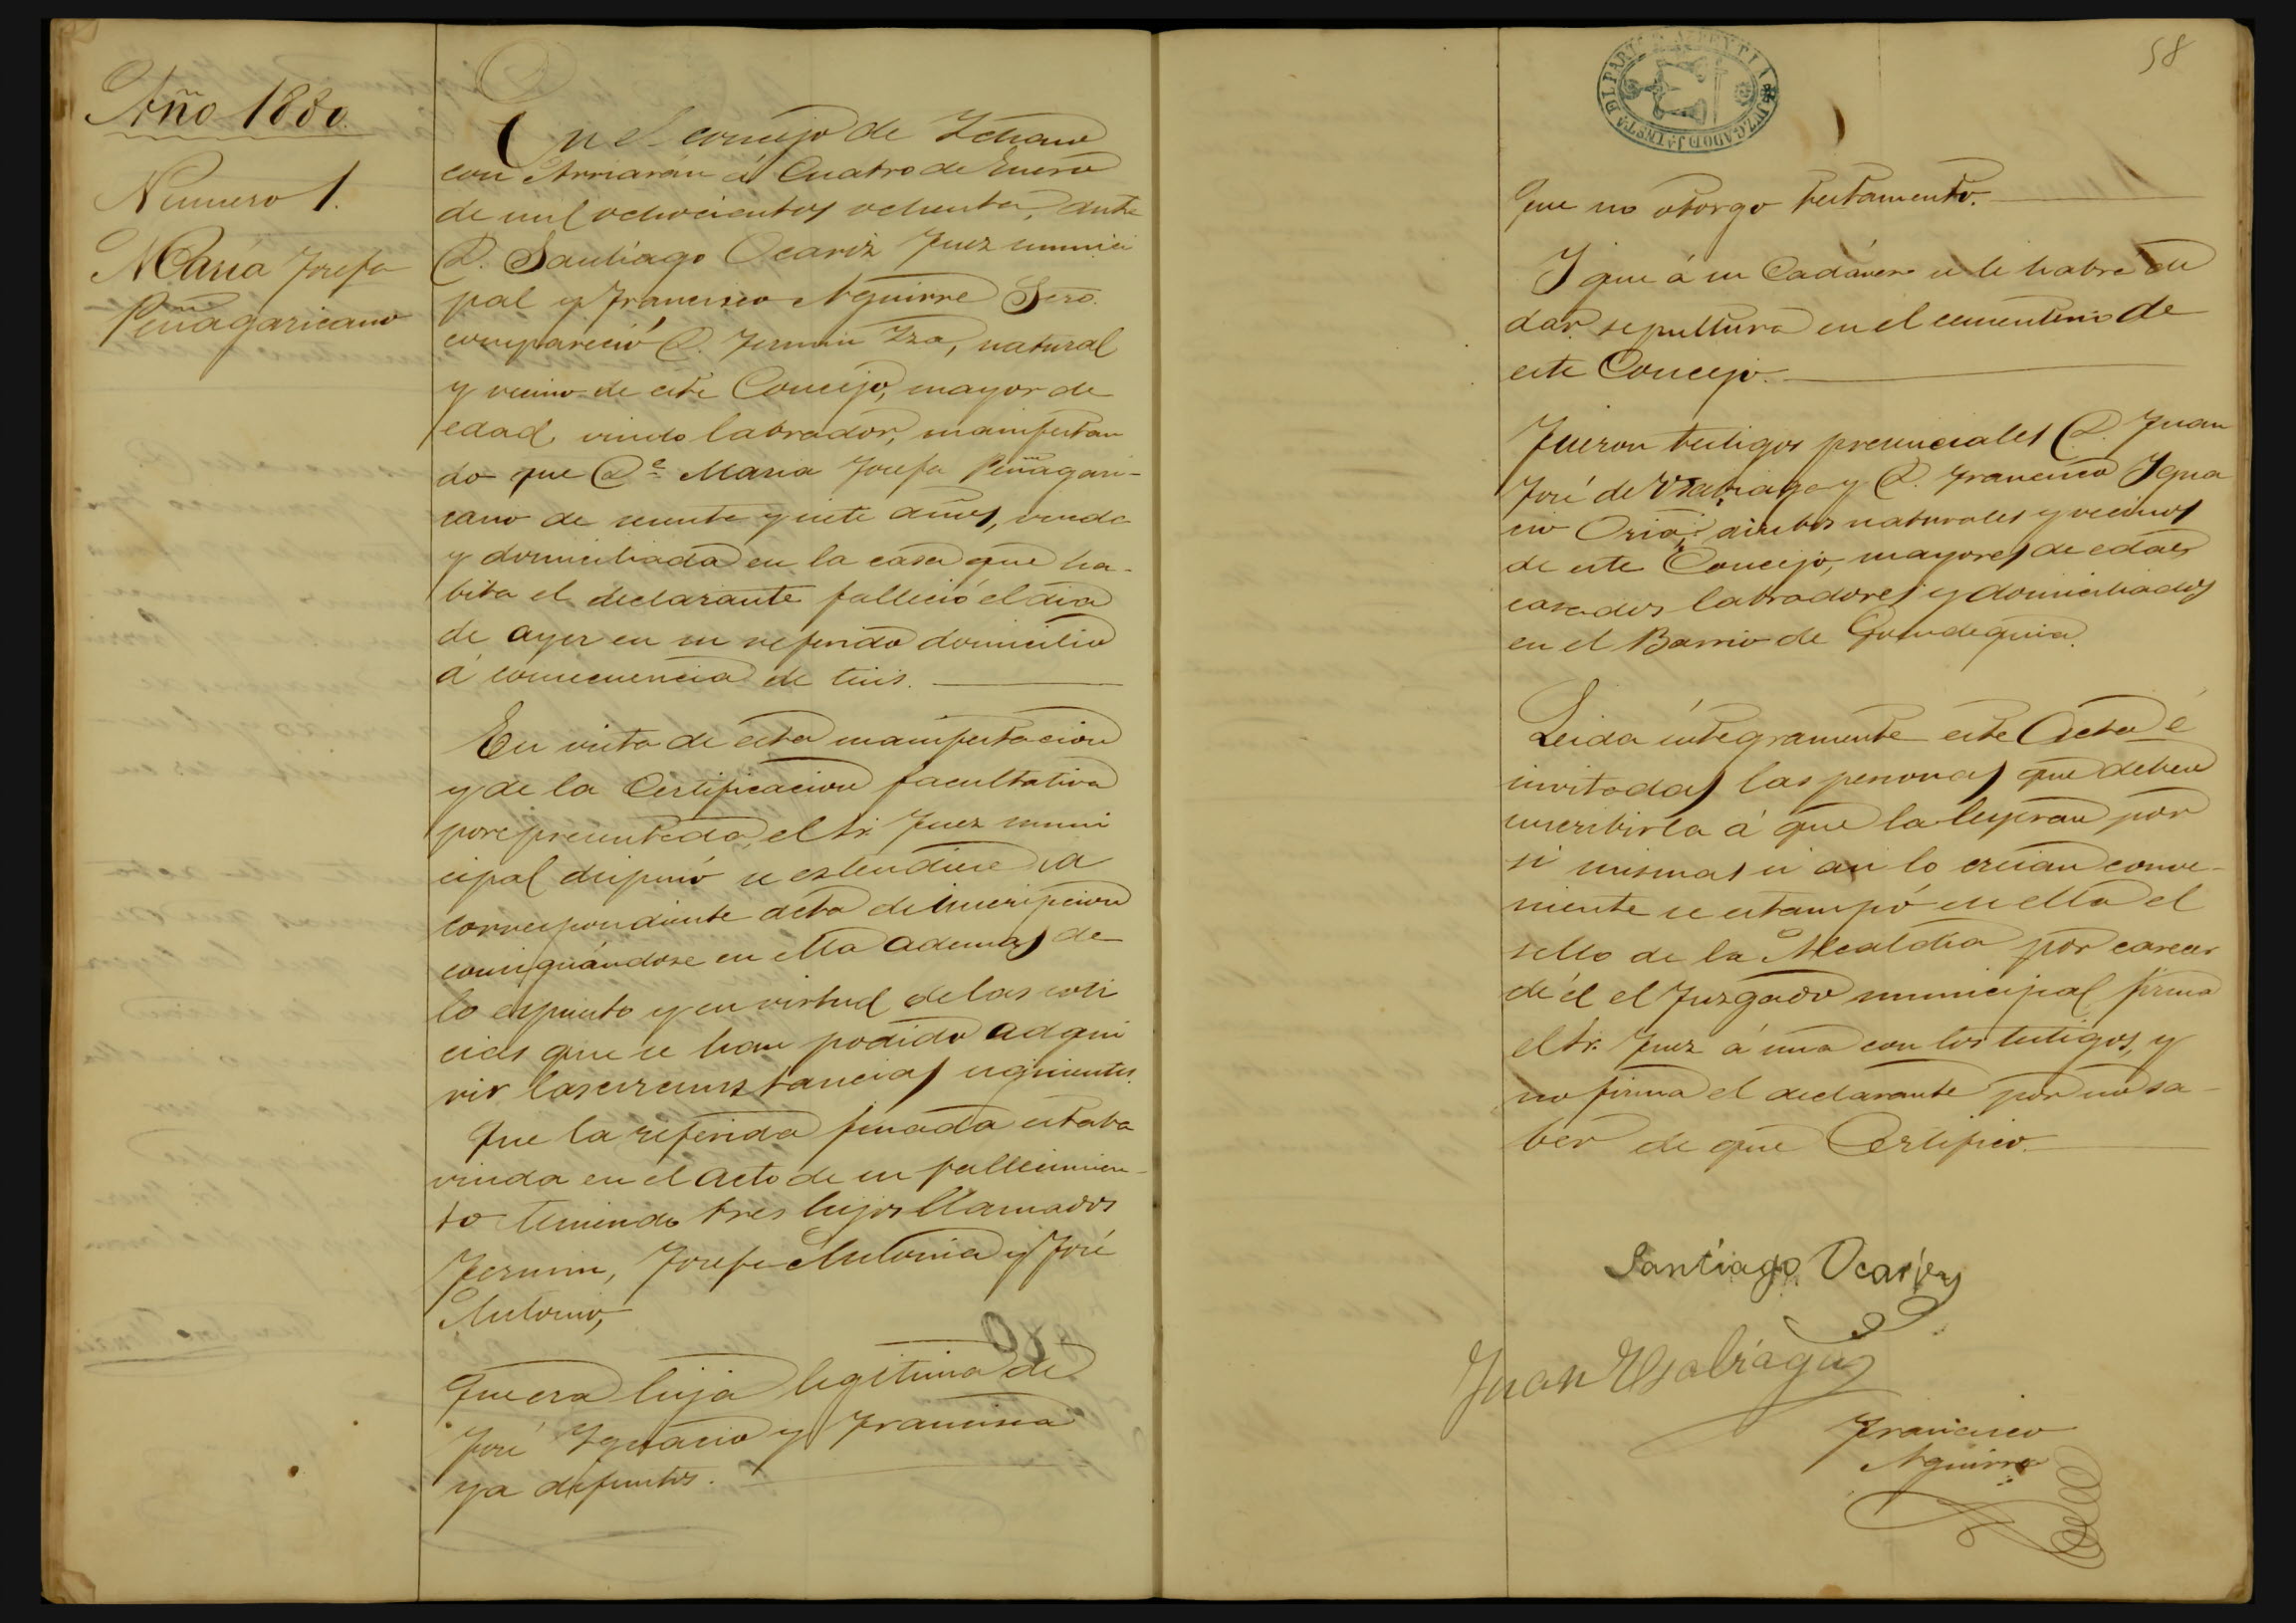 Año 1880.
Numero 1.
Maria Josefa
Peñagaricano
En el concejo de Ichaso
con Arriarán á Cuatro de Enero
de mil ochocientos ochenta, ante
D. Santiago Ocariz Juez munici
pal y Francisco Aguirre Srio.
compareció D. Fermin Iza, natural
y vecino de este Concejo, mayor de
edad, viudo labrador, manifestan
do que Dª Maria Josefa Peñagari-
cano de setenta y siete años, viuda
y domiciliada en la casa que ha-
bita el declarante falleció el dia
de ayer en su referido domicilio
á consecuencia de tisis.
En vista de esta manifestacion
y de la Certificacion facultativa
presentada, el Sr. Juez muni
cipal dispuso se estendiese la
correspondiente acta de inscripcion
consignándose en ella ademas de
lo espuesto y en virtud de las noti
cias que se han podido adqui
rir las circunstancias siguientes.
Que la referida finada estaba
viuda en el acto de su fallecimien-
to teniendo tres hijos llamados
Fermin, Josefa Antonia y José
Antonio,
Que era hija legitima de
José Ygnacio y Francisca
ya difuntos.
58
JUZGADO DE 1ª INSTª DEL PARTº DE AZPEYTIA
Que no otorgo testamento.
Y que á su Cadáver se le habrá de
dar sepultura en el cementerio de
este Concejo.
Fueron testigos presenciales D. Juan
José de Usabiaga y D. Francisco Ygna
cio Oria, ambos naturales y vecinos
de este Concejo, mayores de edad
casados labradores y domiciliados
en el Barrio de
Leida íntegramente este Acta é
invitadas las personas que deben
suscribirla á que la leyeran por
si mismas si asi lo creian conve-
niente se estampó en ella el
sello de la Alcaldia por carecer
de él el Juzgado municipal firma
el Sr. Juez á una con los testigos, y
no firma el declarante por no sa-
ber de que Certifico.
Santiago Ocariz
Juan Usabiaga
Francisco
Aguirre